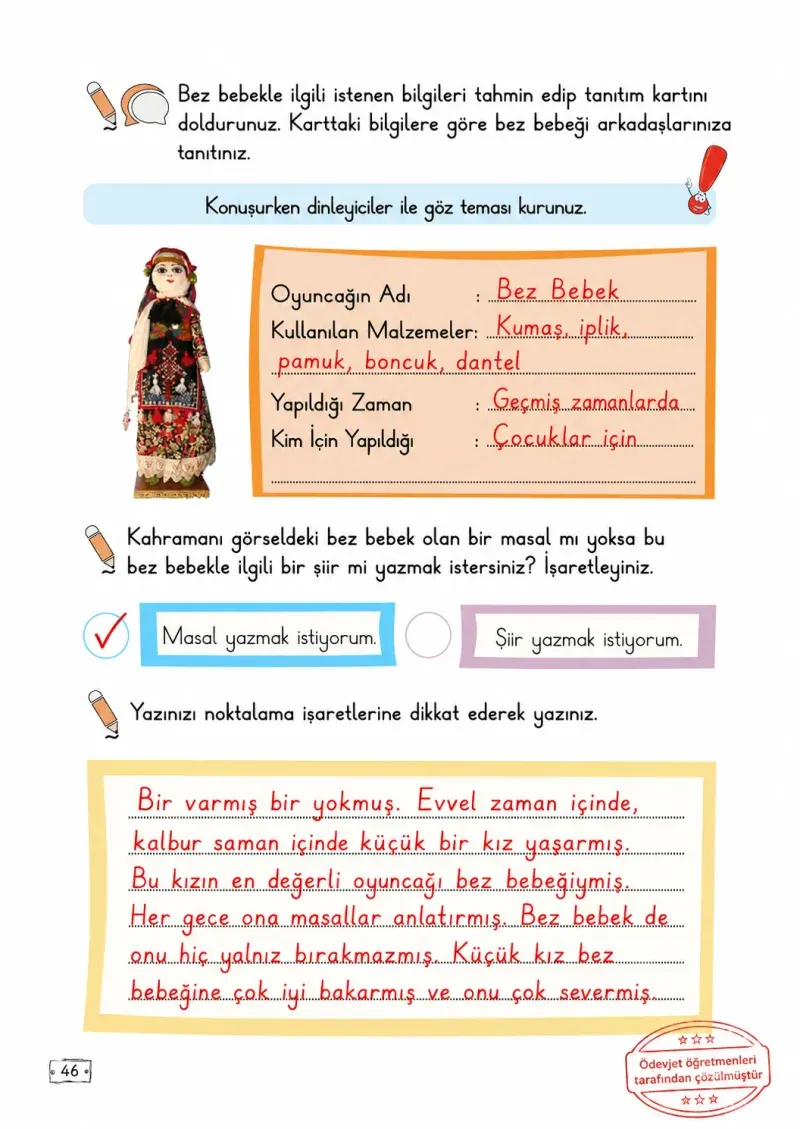 Bez bebekle ilgili istenen bilgileri tahmin edip tanıtım kartını
doldurunuz. Karttaki bilgilere göre bez bebeği arkadaşlarınıza
tanıtınız.
Konuşurken dinleyiciler ile göz teması kurunuz.
Oyuncağın Adı : Bez Bebek
Kullanılan Malzemeler: Kumaş, iplik,
pamuk, boncuk, dantel
Yapıldığı Zaman : Geçmiş zamanlarda
Kim İçin Yapıldığı : Çocuklar için
Kahramanı görseldeki bez bebek olan bir masal mı yoksa bu
bez bebekle ilgili bir şiir mi yazmak istersiniz? İşaretleyiniz.
Masal yazmak istiyorum.
Şiir yazmak istiyorum.
Yazınızı noktalama işaretlerine dikkat ederek yazınız.
Bir varmış bir yokmuş. Evvel zaman içinde,
kalbur saman içinde küçük bir kız yaşarmış.
Bu kızın en değerli oyuncağı bez bebeğiymiş.
Her gece ona masallar anlatırmış. Bez bebek de
onu hiç yalnız bırakmazmış. Küçük kız bez
bebeğine çok iyi bakarmış ve onu çok severmiş.
46
Ödevjet öğretmenleri
tarafından çözülmüştür